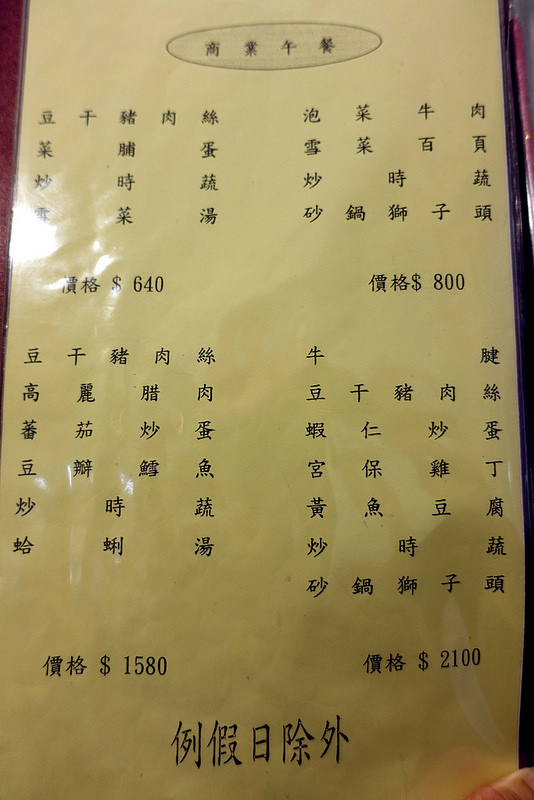 商業午餐
豆干豬肉絲
菜脯蛋
炒時蔬
雪菜湯
價格 $ 640
泡菜牛肉
雪菜百頁
炒時蔬
砂鍋獅子頭
價格$ 800
豆干豬肉絲
高麗腊肉
蕃茄炒蛋
豆瓣鱈魚
炒時蔬
蛤蜊湯
價格 $ 1580
牛腱
豆干豬肉絲
蝦仁炒蛋
宮保雞丁
黃魚豆腐
炒時蔬
砂鍋獅子頭
價格 $ 2100
例假日除外